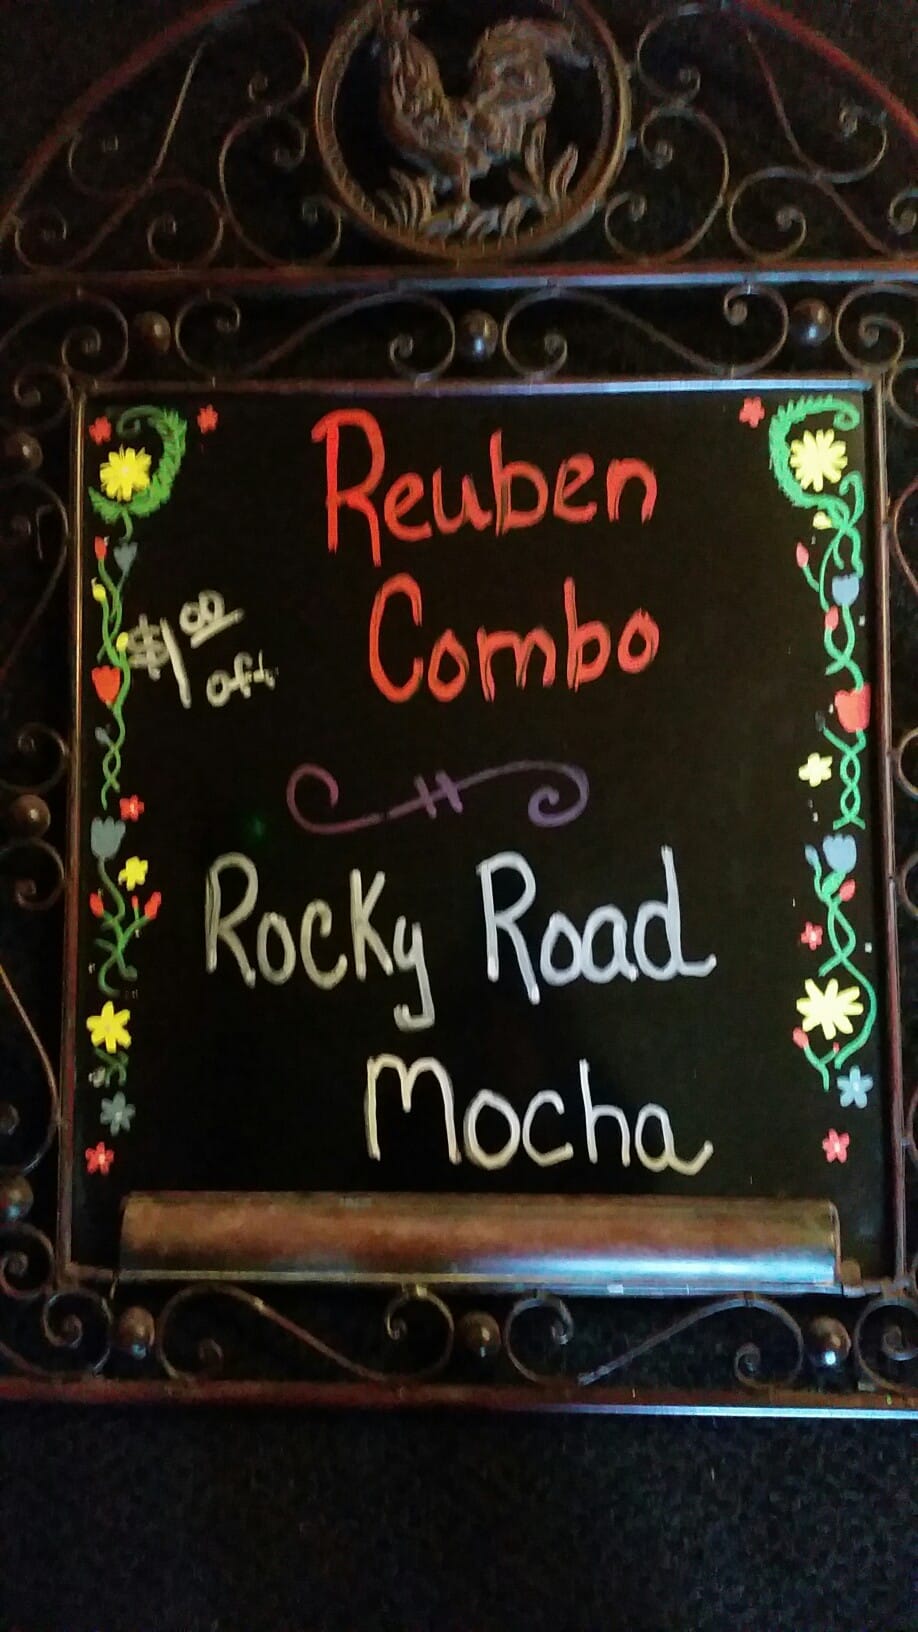 Reuben
Combo
$1.00
off
Rocky Road
Mocha